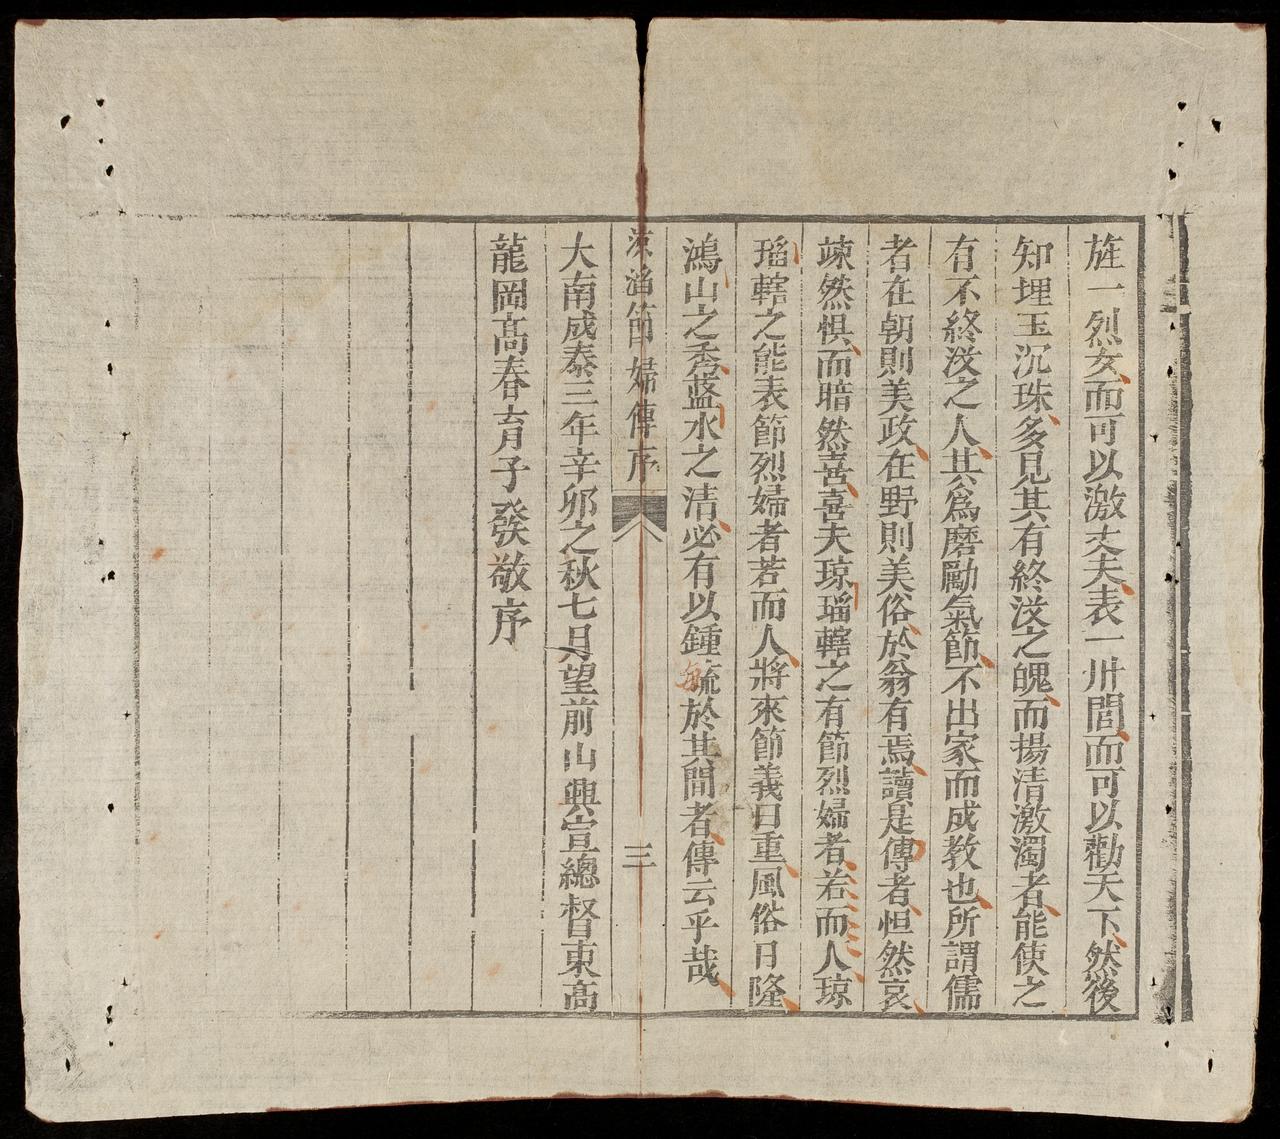 旌一烈女而可以激丈夫表一卅閭而可以勸天下然後
知埋玉沉珠多見其有終沒之魄而揚清激濁者能使之
有不終沒之人其爲磨勵氣節不出家而成教也所謂儒
者在朝則美政在野則美俗於翁有焉讀是傳者怛然哀
竦然惧而暗然喜喜夫琼瑫轄之有節烈婦者若而人琼
瑫轄之能表節烈婦者若而人將來節義日重風俗日隆
鴻山之秀藍水之清必有以鍾毓於其間者傳云乎哉
琼瑫節婦傳序
三
大南成泰三年辛卯之秋七月望前山興宣總督東高
龍岡高春育子發敬序